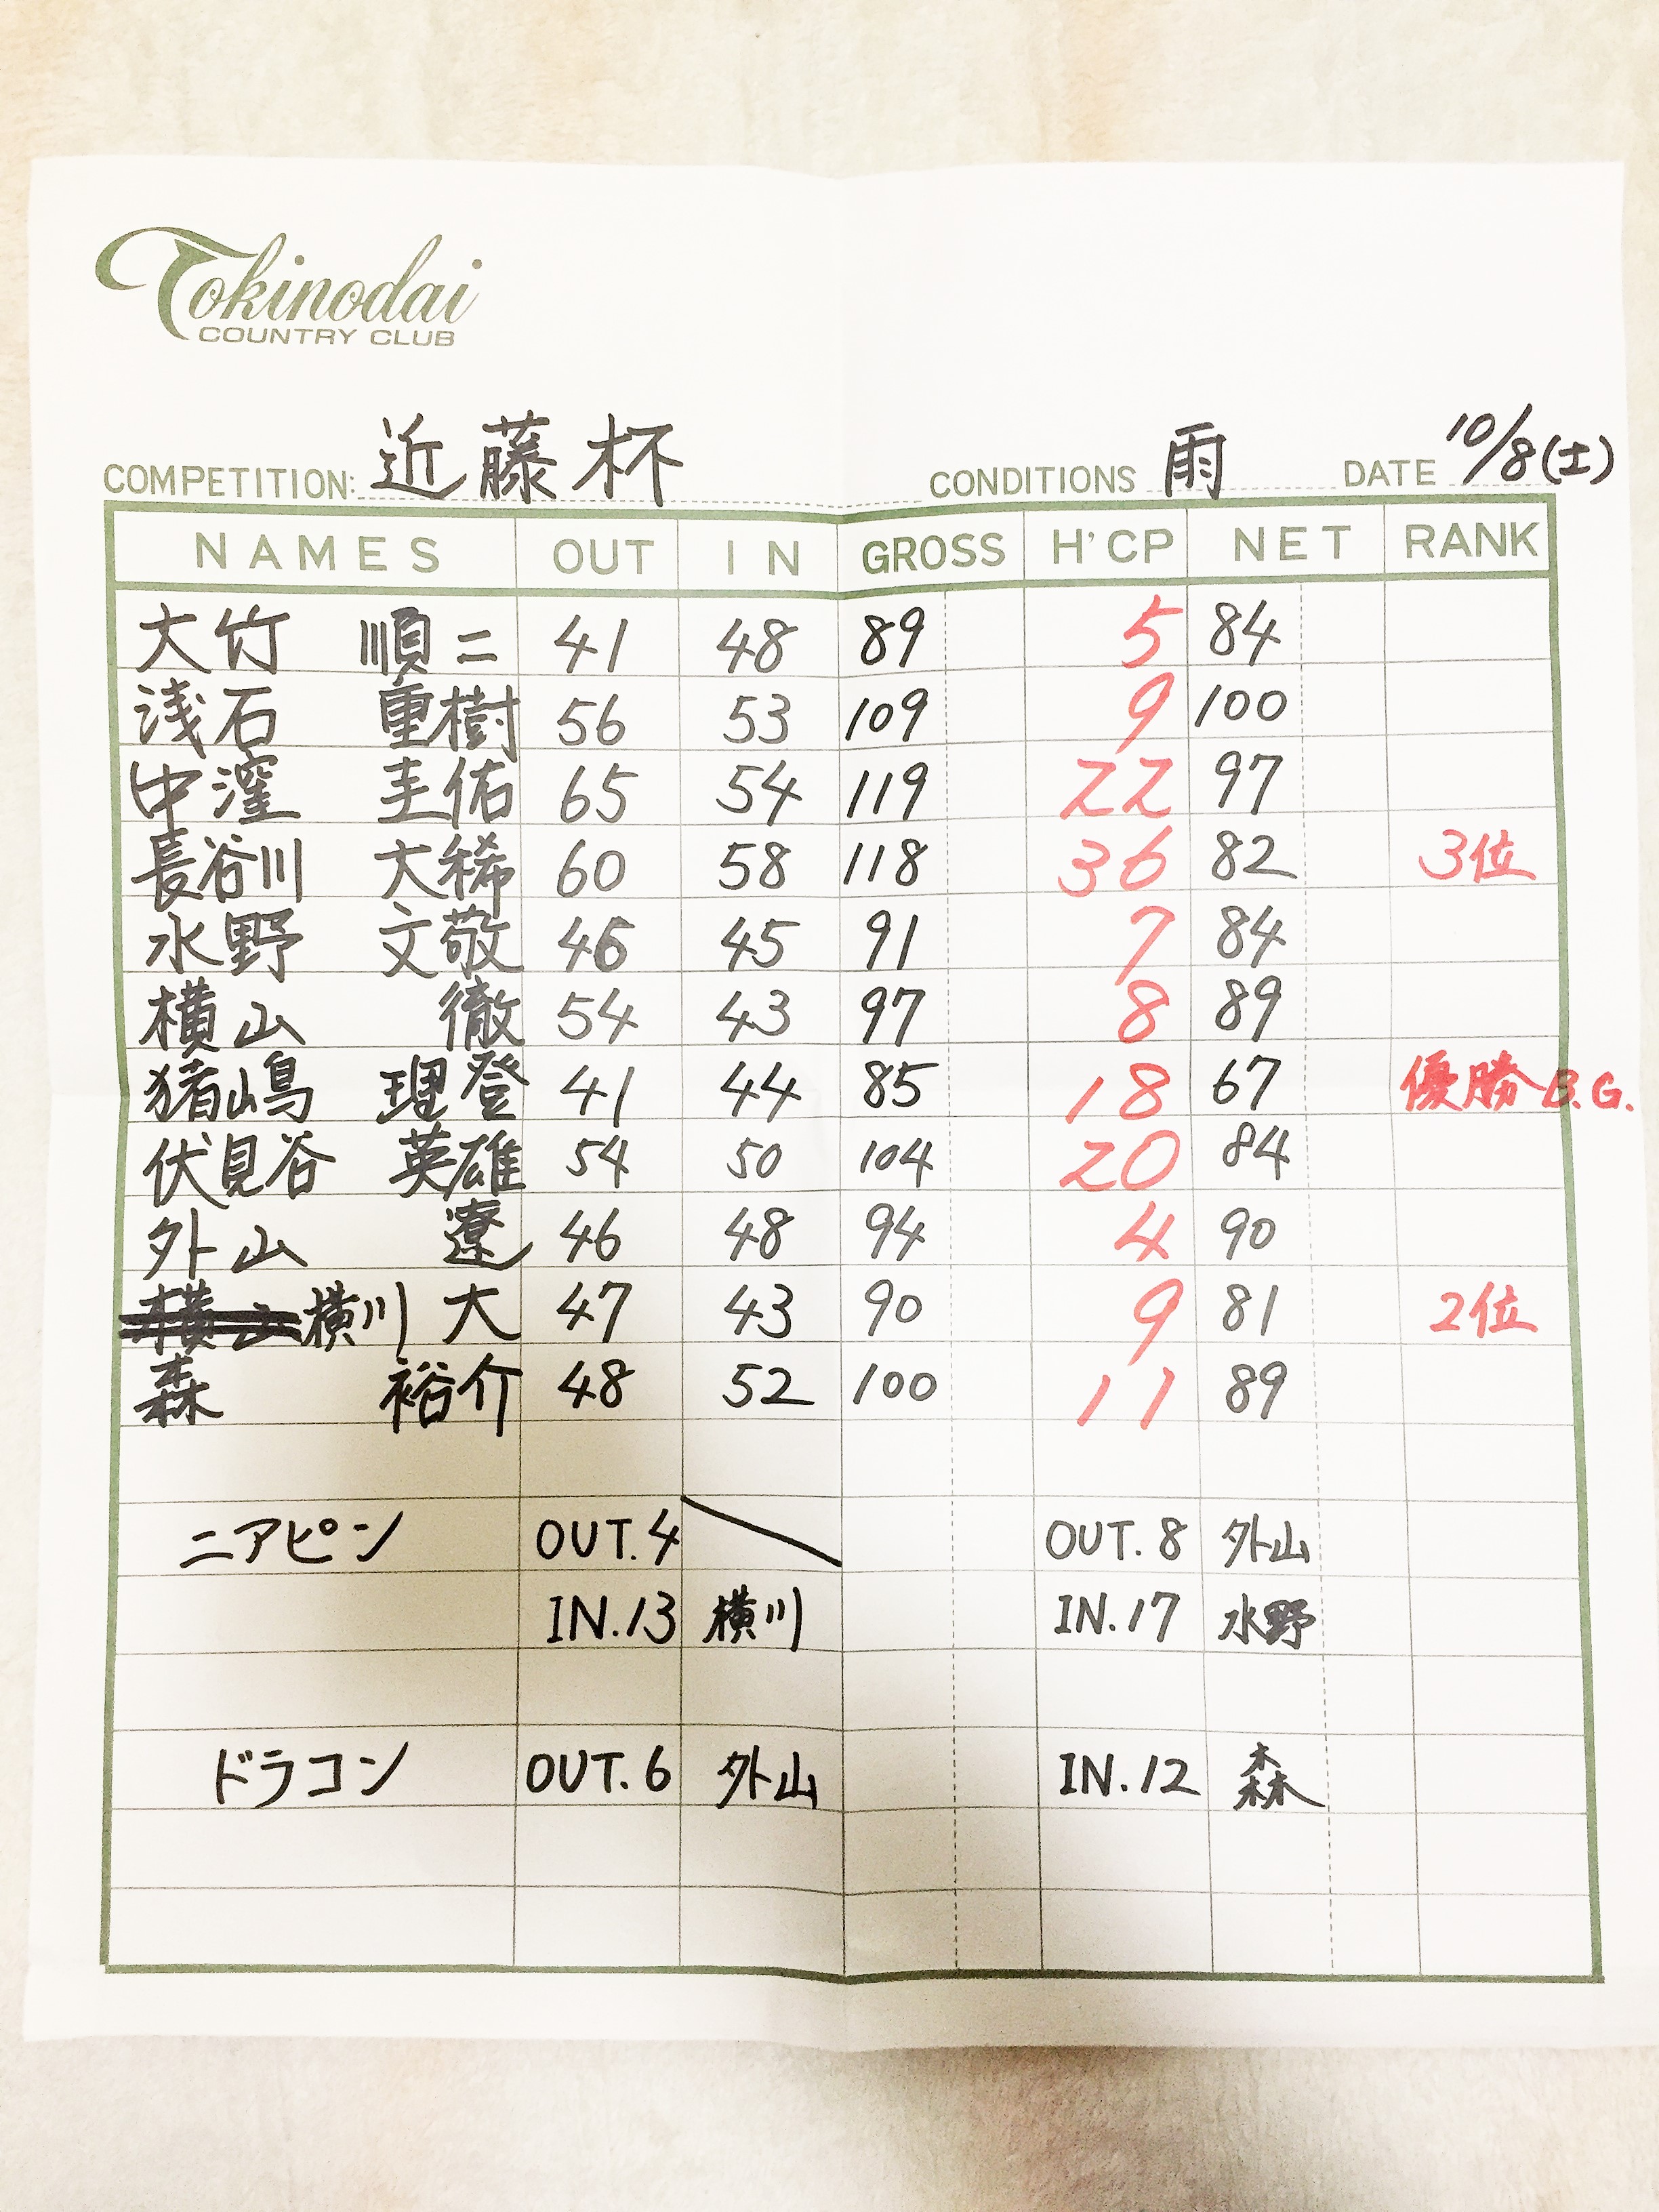 Tokinodai
COUNTRY CLUB
COMPETITION: 近藤杯 CONDITIONS 雨 DATE 10/8(土)
NAMES OUT IN GROSS H'CP NET RANK
大竹 順二 41 48 89 5 84
浅石 重樹 56 53 109 9 100
中窪 圭佑 65 54 119 22 97
長谷川 大稀 60 58 118 36 82 3位
水野 文敬 46 45 91 7 84
横山 徹 54 43 97 8 89
猪嶋 理登 41 44 85 18 67 優勝 B.G.
伏見谷 英雄 54 50 104 20 84
外山 遼 46 48 94 4 90
横川 大 47 43 90 9 81 2位
森 裕介 48 52 100 11 89
ニアピン OUT.4 OUT.8 外山
IN.13 横川 IN.17 水野
ドラコン OUT.6 外山 IN.12 森